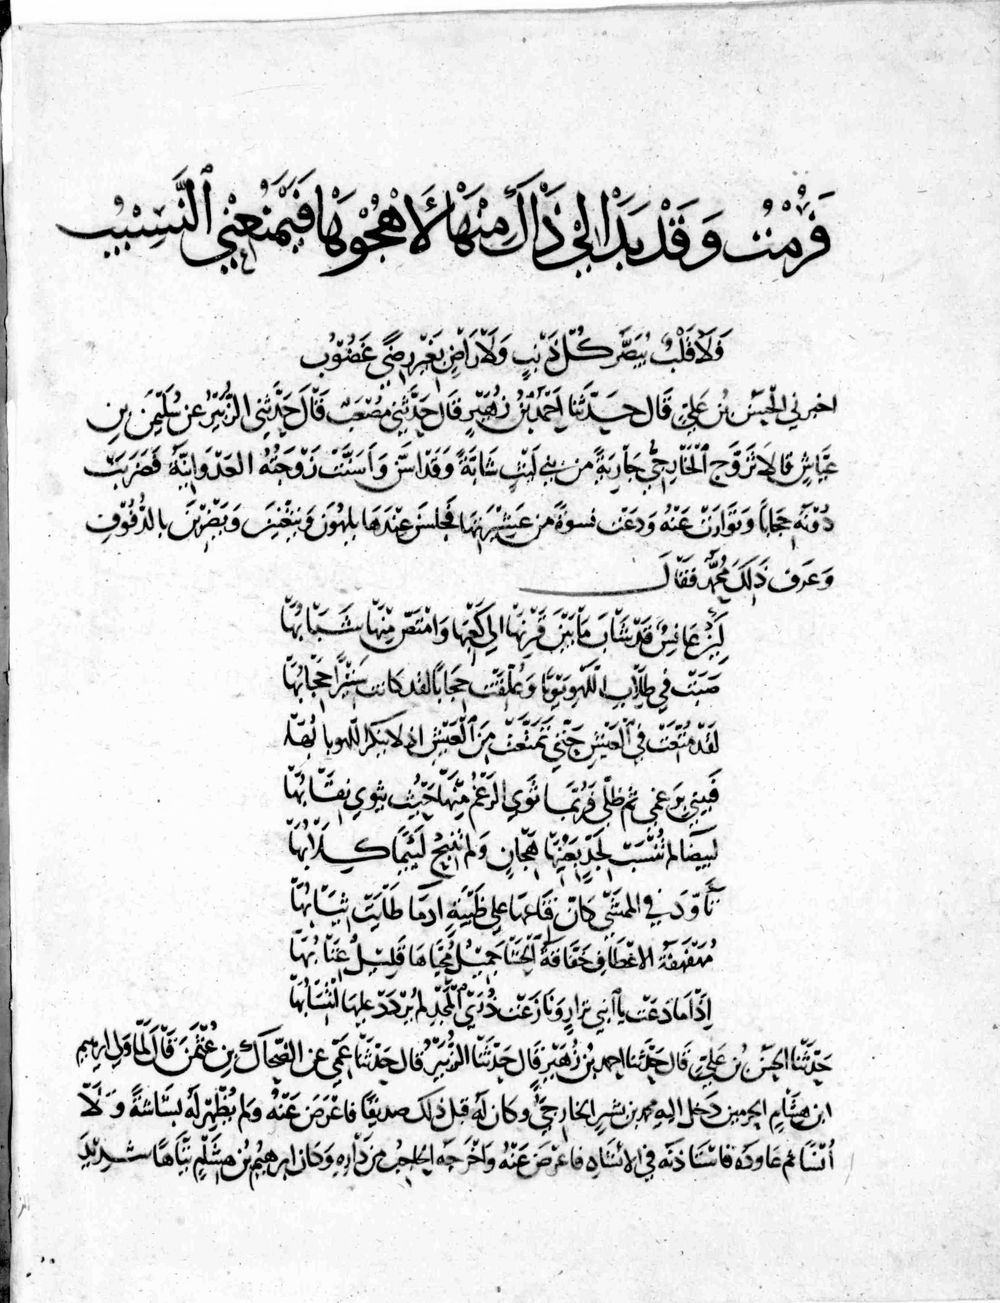 فَرُمْتُ وَقَدْ بَدَا لِي ذَاكَ مِنْهَا لَأَهْجُوَهَا فَيَمْنَعُنِي ٱلنَّسِيبُ
فَلَا قَلْبٌ يُبَصَّرُ كُلَّ ذَنْبٍ وَلَا رَاضٍ بِغَيْرِ رِضًى غَضُوبُ
اخبرني الحسن بن علي قال حدثنا احمد بن زهير قال حدثني مصعب قال حدثني الزبير عن سليمن بن
عياش قال لا تزوج الخارجي جارية من بني ليث شابة وقد اسن واسنت زوجته العدوانية فضربت
دونه حجابا وتوارت عنه ودعت نسوة من عشيرتها فجلسن عندها يلهون ويتغنين ويضربن بالدفوف
وعرف ذلك محمد فقال
لئن عانس قد شاب ما بين قرنها الى كعبها وامتص منها شبابها
صبت في طلاب اللهو يوما وعلقت حجابا لقد كانت ستيرا حجابها
لقد متعت في العيش حتى تمتعت من العيش اذ لا ينكر اللهو بابها
فبيني برغمي ثم ظلي فربما ثوى الرغم منها حيث يثوي نقابها
لبيضا لم تنسب لجد يعيبها هجان ولم تنبح لئيما كلابها
تأود في الممشى كان قناعها على ظبية ادما طابت ثيابها
مهفهفة الاعطاف خفاقة الحشا جميل محياها قليل عتابها
اذا ما دعت بابني نزار ونازعت ذرى المجد لم يردد عليها انتسابها
حدثنا الحسن بن علي قال حدثنا احمد بن زهير قال حدثنا الزبير قال حدثنا عمي عن الضحاك بن عثمن قال لما ولي ابرهيم
ابن هشام الحرمين دخل اليه محمد بن بشير الخارجي وكان له قبل ذلك صديقا فاعرض عنه ولم يظهر له بشاشة ولا
انسا ثم عاوده فاستاذنه في الانشاد فاعرض عنه واخرجه الحاجب من داره وكان ابرهيم بن هشام تياها شديد